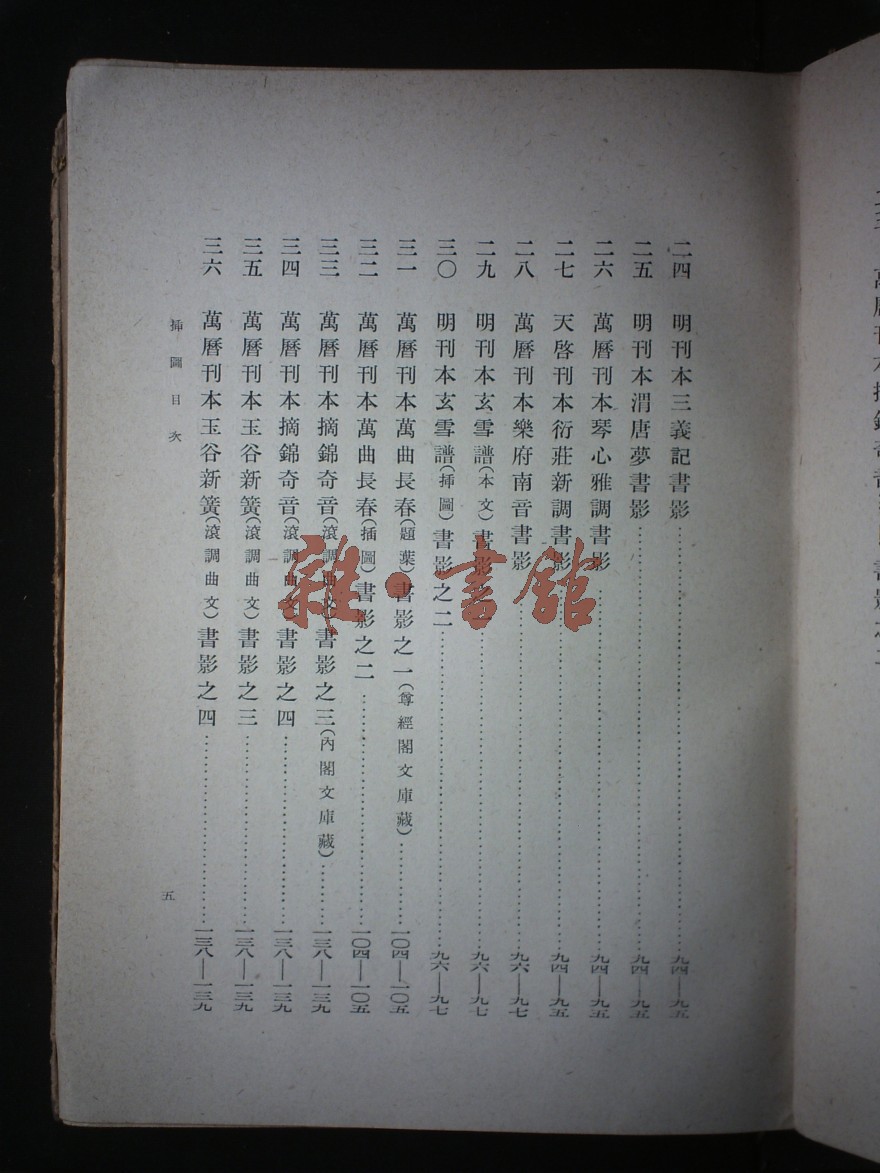 二四 明刊本三義記書影……九四—九五
二五 明刊本渭唐夢書影……九四—九五
二六 萬曆刊本琴心雅調書影……九四—九五
二七 天啓刊本衍莊新調書影……九四—九五
二八 萬曆刊本樂府南音書影……九六—九七
二九 明刊本玄雪譜(本文)書影……九六—九七
三〇 明刊本玄雪譜(挿圖)書影之二……九六—九七
三一 萬曆刊本萬曲長春(題葉)書影之一(尊經閣文庫藏)……一〇四—一〇五
三二 萬曆刊本萬曲長春(插圖)書影之二……一〇四—一〇五
三三 萬曆刊本摘錦奇音(滾調曲文)書影之三(內閣文庫藏)……一三八—一三九
三四 萬曆刊本摘錦奇音(滾調曲文)書影之四……一三八—一三九
三五 萬曆刊本玉谷新簧(滾調曲文)書影之三……一三八—一三九
三六 萬曆刊本玉谷新簧(滾調曲文)書影之四……一三八—一三九
挿圖目次
五
雜·書館